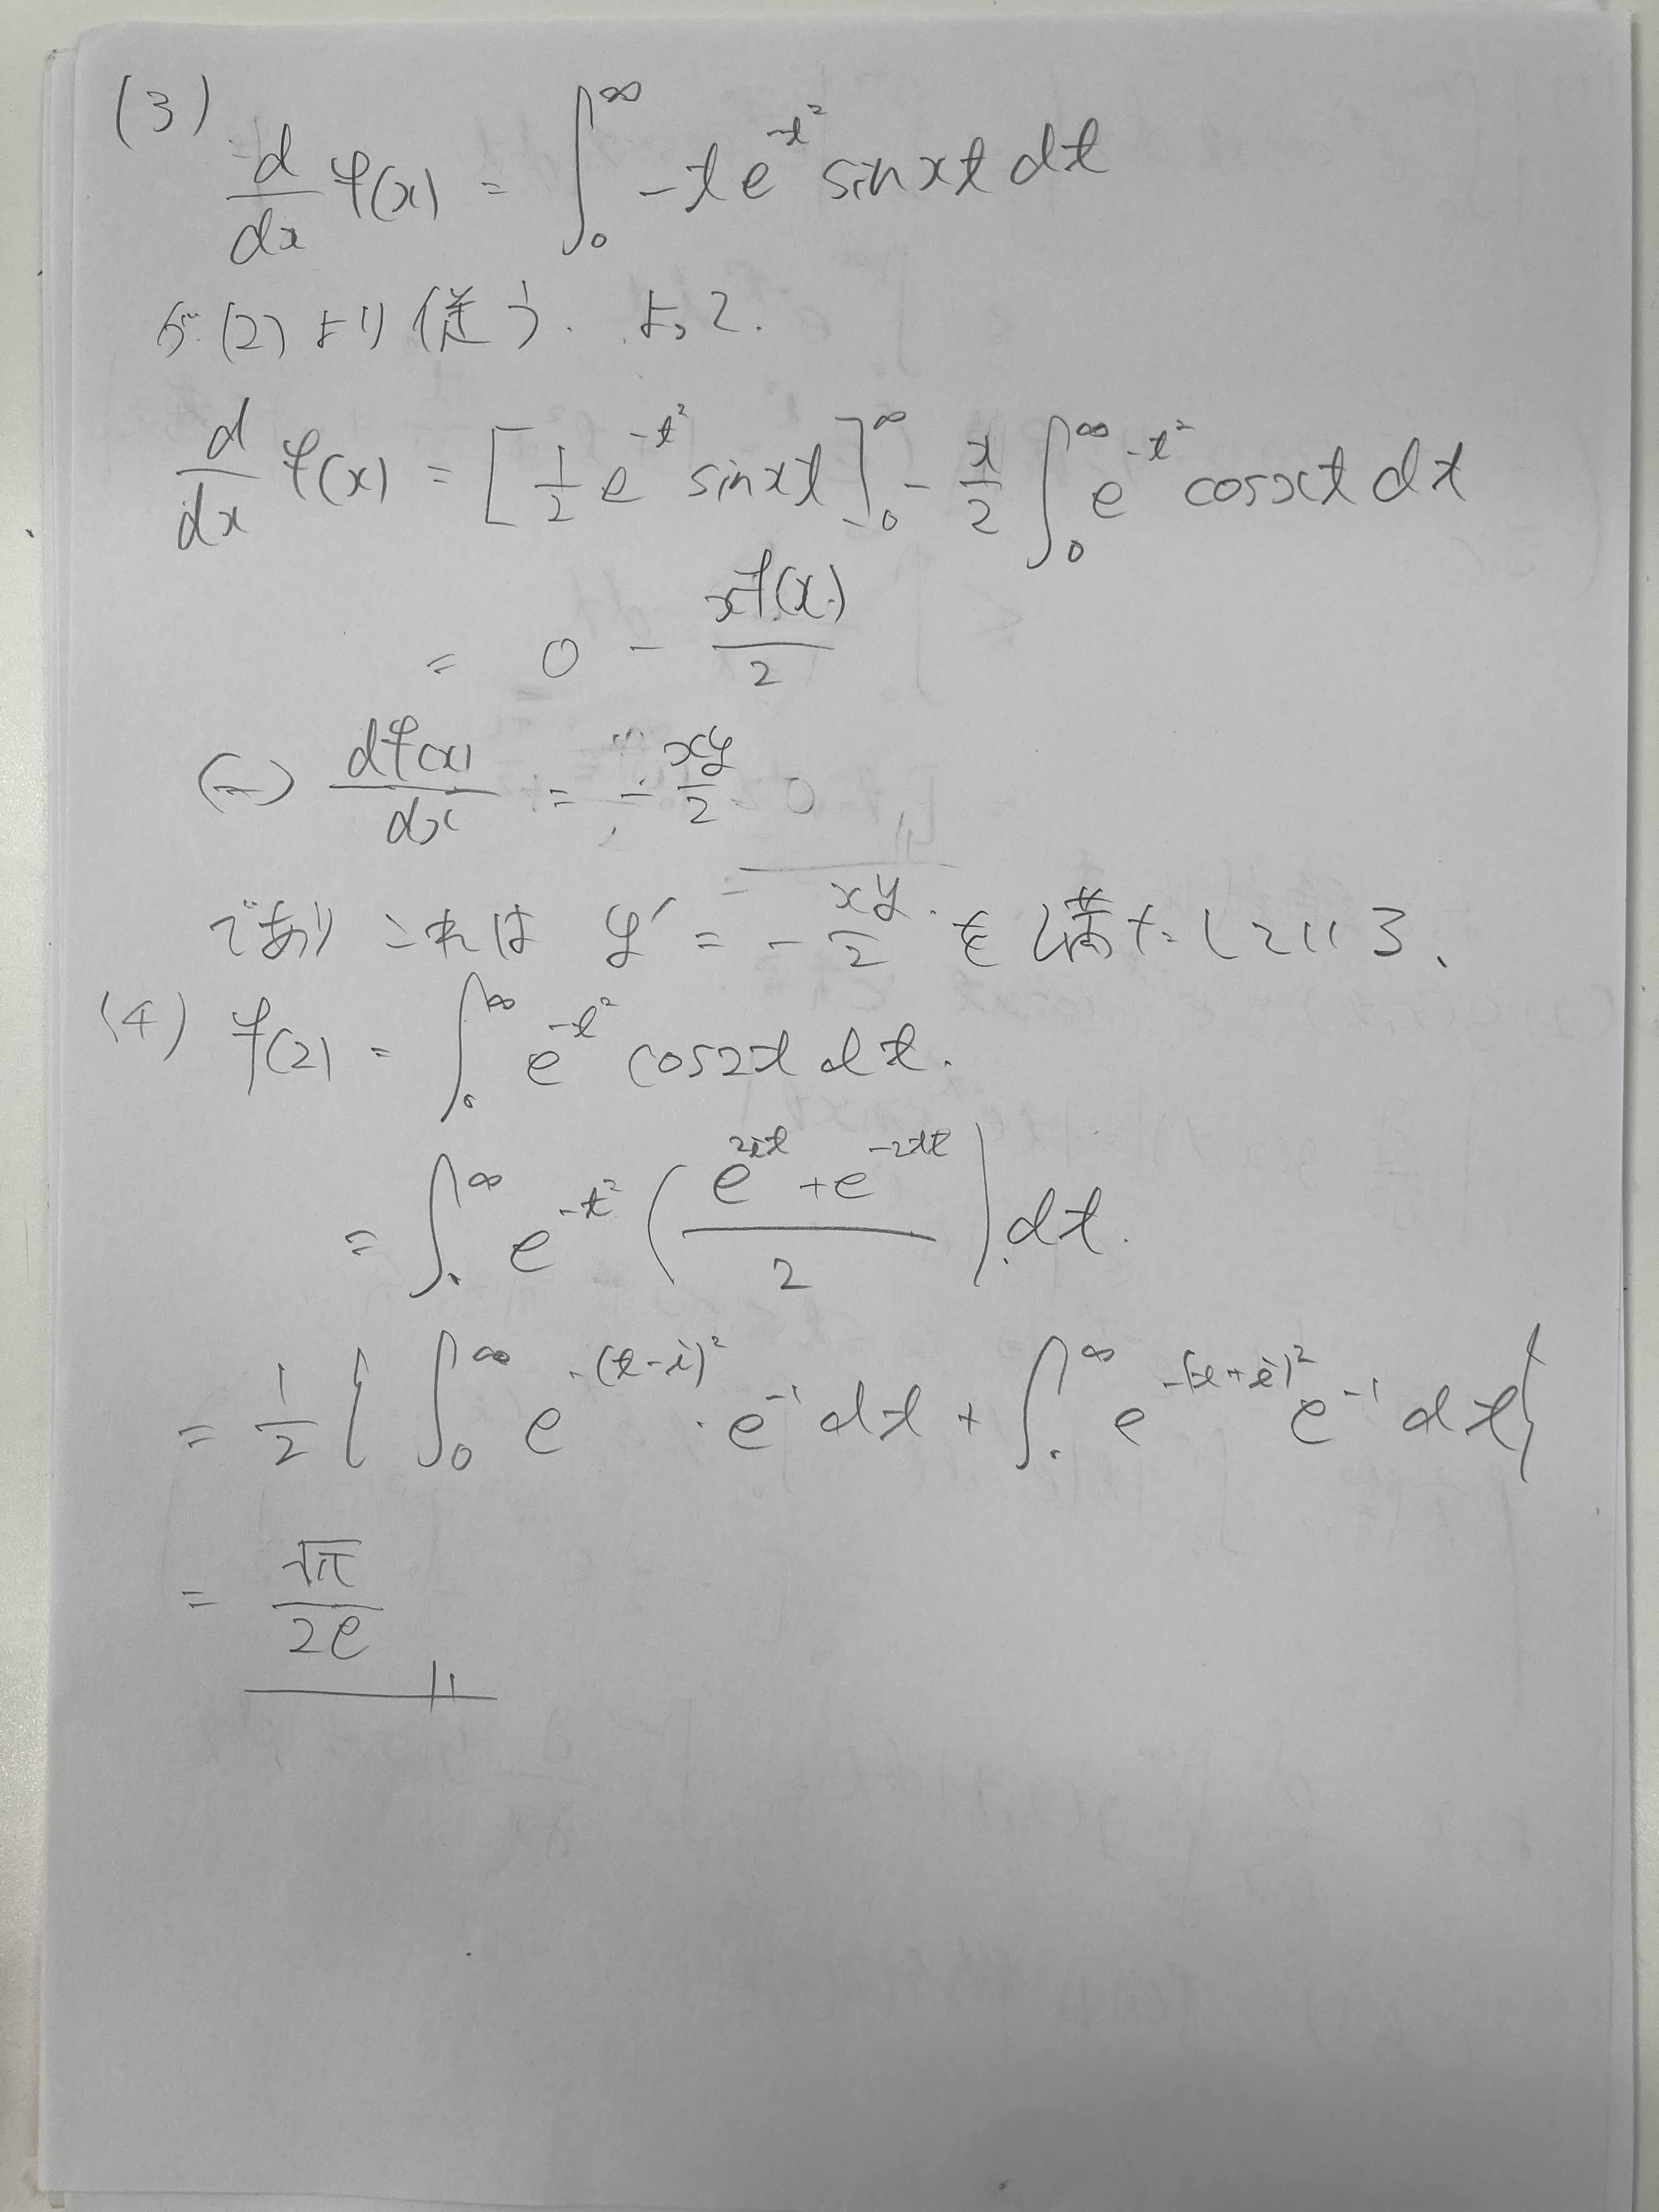 (3)
d/dx φ(x) = ∫₀^∞ -t e^{-t²} sin xt dt
が (2) より従う. よって.
d/dx φ(x) = [1/2 e^{-t²} sin xt]₀^∞ - x/2 ∫₀^∞ e^{-t²} cos xt dt
= 0 - xφ(x)/2
dφ(x)/dx = - xy/2
であり これは y' = - xy/2 を満たしている、
(4) φ(2) = ∫₀^∞ e^{-t²} cos 2t dt.
= ∫₀^∞ e^{-t²} ( (e^{2it} + e^{-2it}) / 2 ) dt.
= 1/2 { ∫₀^∞ e^{-(t-i)²} · e^{-1} dt + ∫₀^∞ e^{-(t+i)²} e^{-1} dt }
= √π / 2e